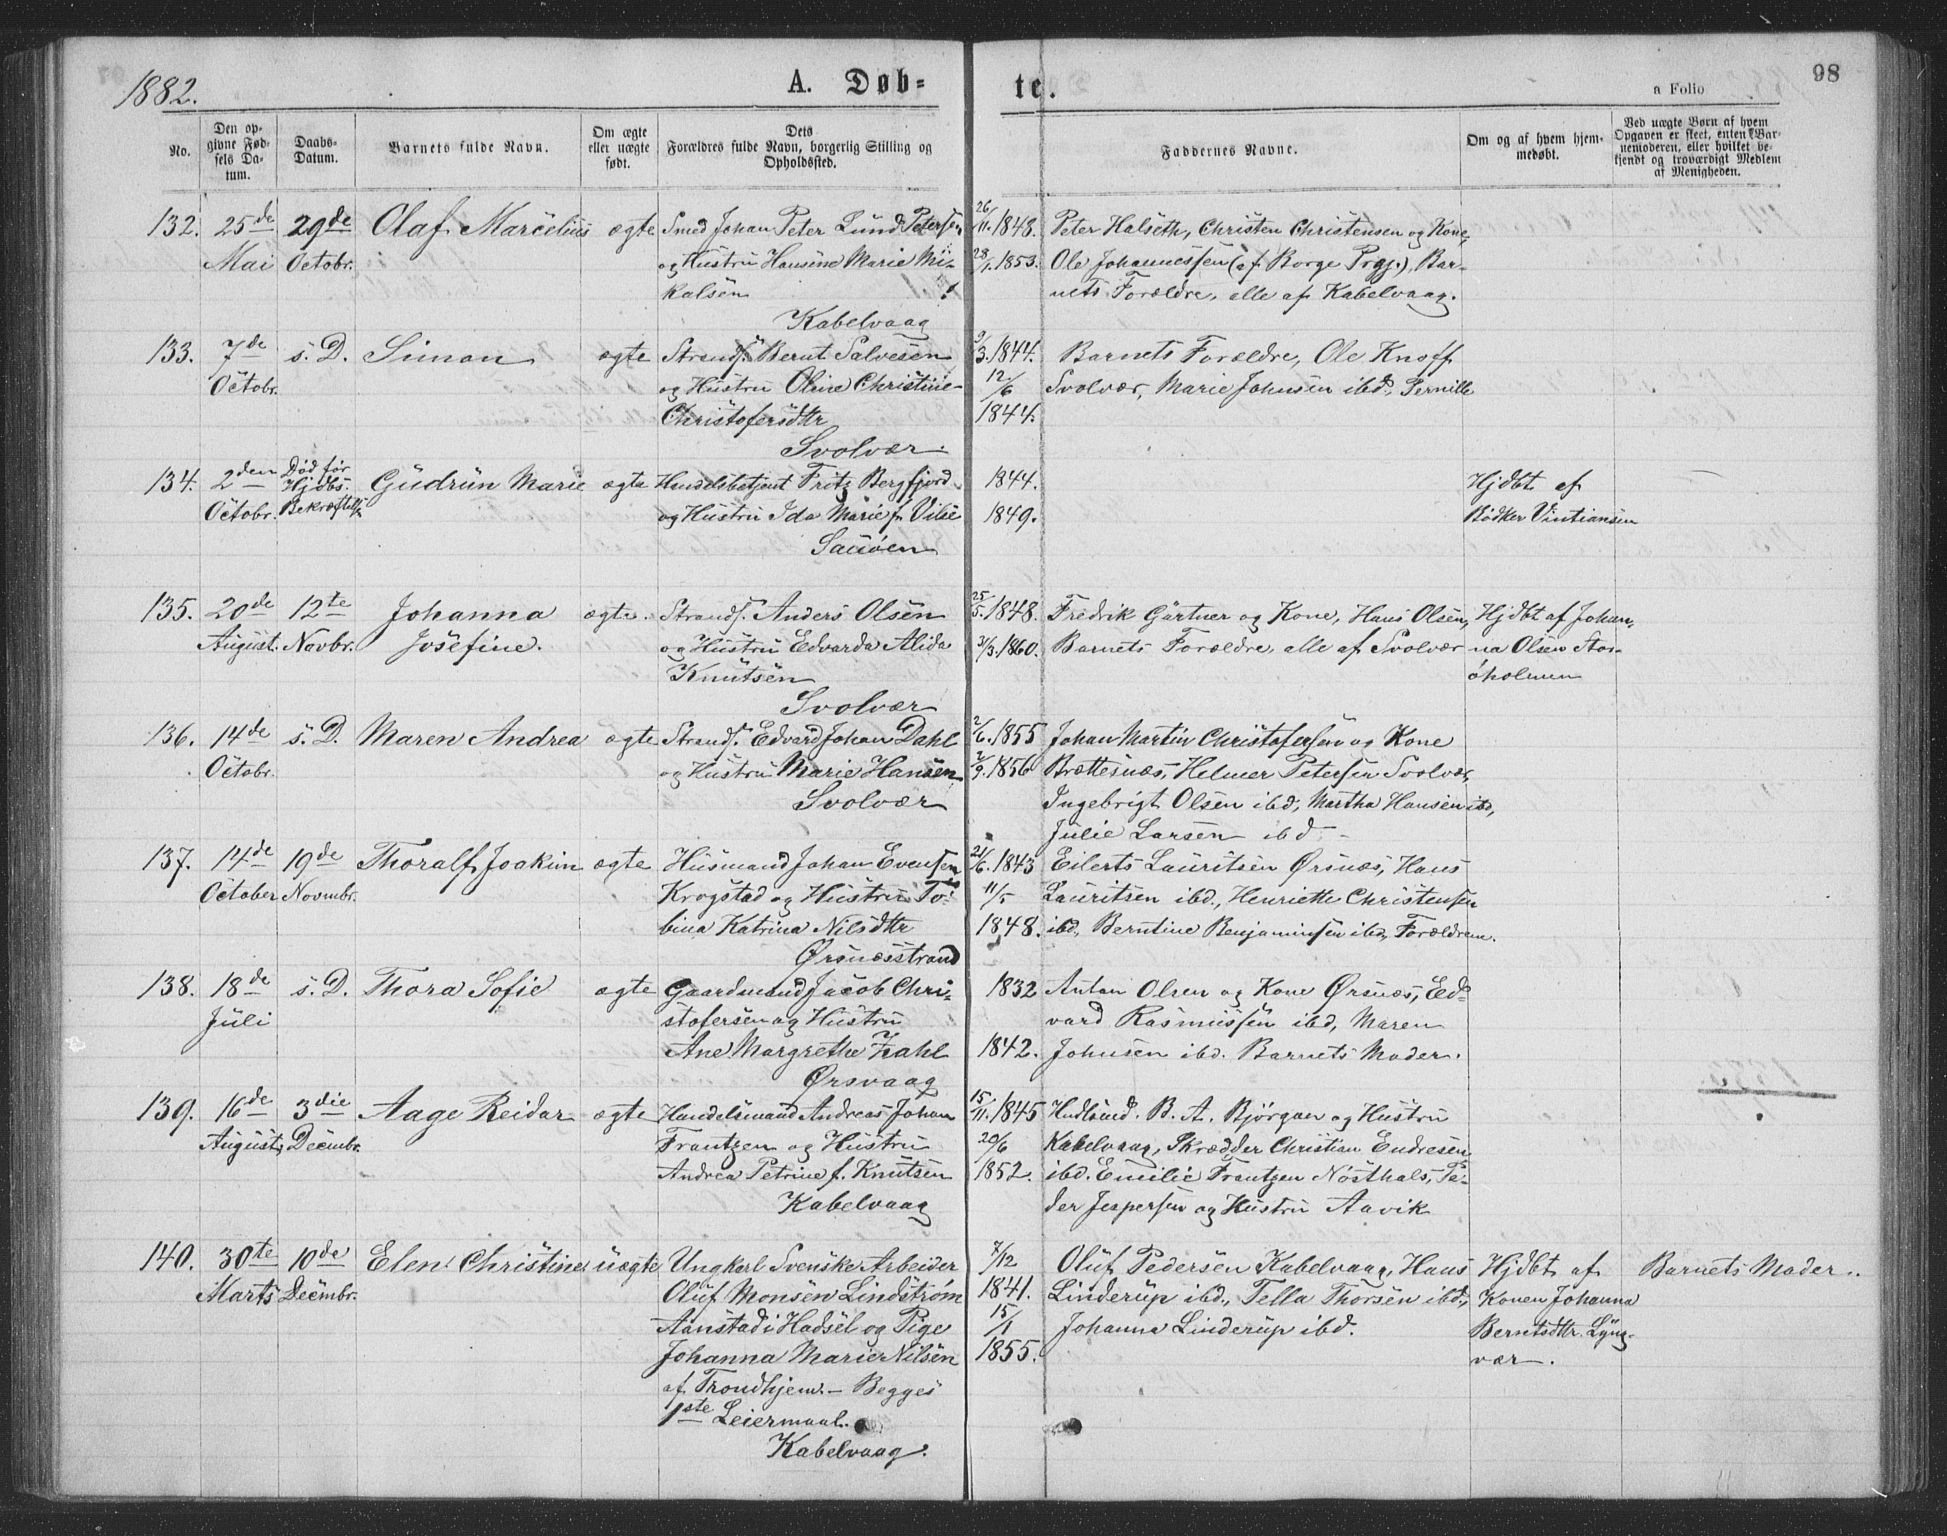 1882.
A. Døb-
te.
98
a Folio
No.
Den op-
givne Fød-
sels Da-
tum.
Daabs-
Datum.
Barnets fulde Navn.
Om ægte
eller uægte
født.
Dets
Forældres fulde Navn, borgerlig Stilling og
Opholdssted.
Faddernes Navne.
Om og af hvem hjem-
medøbt.
Ved uægte Børn af hvem
Opgaven er skeet, enten Bar-
nemoderen, eller hvilket be-
kjendt og troværdigt Medlem
af Menigheden.
132. 25de Mai
29de Octobr.
Olaf Marcelius
ægte
Smed Johan Peter Lund Petersen
og Hustru Hansine Marie Mi-
kalsen
Kabelvaag
26/11. 1848.
28/1. 1853.
Peter Halseth, Christen Christensen og Kone,
Ole Johannessen (af Borge Prgj.), Bar-
nets Forældre, alle af Kabelvaag.
133. 7de Octobr.
s. D.
Simon
ægte
Strands. Bernt Salvesen
og Hustru Oline Christine
Christofersdtr
Svolvær.
9/3. 1844.
12/6
1844.
Barnets Forældre, Ole Knoff
Svolvær, Marie Johnsen ibd, Pernille
134. 2den Octobr.
Død før
Hjdbs.
Bekræftelse
Gudrun Marie
ægte
Handelsbetjent Fritz Bergfjord
og Hustru Ida Marie f. Vibe
Sauøen
1844.
1849.
Hjdbt af
Bødker Vintiansen
135. 20de August.
12te Novbr.
Johanna
Josefine.
ægte.
Strands. Anders Olsen
og Hustru Edvarda Alida
Knutsen
Svolvær
25/5. 1848.
31/3. 1860.
Fredrik Gärtner og Kone, Hans Olsen,
Barnets Forældre, alle af Svolvær
Hjdbt af Johan-
na Olsen Stor-
øholmen
136. 14de Octobr.
s. D.
Maren Andrea
ægte
Strands. Edvard Johan Dahl
og Hustru Marie Hansen
Svolvær
2/6. 1855
2/9. 1856
Johan Martin Christofersen og Kone
Brættesnæs, Helmer Petersen Svolvær,
Ingebrigt Olsen ibd, Martha Hansen ibd,
Julie Larsen ibd.
137. 14de October
19de Novmbr.
Thoralf Joakim
ægte
Husmand Johan Evensen
Krogstad og Hustru To-
bina Katrina Nilsdtr
Ørsnæsstrand
21/6. 1843
11/5
1848.
Eilerts Lauritsen Ørsnæs, Hans
Lauritsen ibd., Henriette Christensen
ibd, Berntine Benjaminsen ibd, Forældrene.
138. 18de Juli
s. D.
Thora Sofie
ægte
Gaardmand Jacob Chri-
stofersen og Hustru
Ane Margrethe Zahl
Ørsvaag
1832
1842.
Anton Olsen og Kone Ørsnæs, Ed-
vard Rasmussen ibd, Maren
Johnsen ibd. Barnets Moder.
139. 16de August
3die Decmbr.
Aage Reidar
ægte
Handelsmand Andreas Johan
Frantzen og Hustru
Andrea Petrine f. Knutsen
Kabelvaag
15/11. 1845
20/6
1852.
Hndlsmd. B. A. Bjørgan og Hustru
Kabelvaag, Skrædder Christian Endresen
ibd. Emilie Frantzen Nøsthals, Pe-
der Jespersen og Hustru Aavik
140. 30te Marts
10de Decmbr.
Elen Christine
uægte
Ungkarl Svenske Arbeider
Oluf Monsen Lindström
Aanstad i Hadsel og Pige
Johanna Marie Nilsen
af Trondhjem. – Begges
1ste Leiermaal.
Kabelvaag.
7/12
1841.
15/1
1855.
Oluf Pedersen Kabelvaag, Hans
Linderup ibd., Tella Thorsen ibd.,
Johanna Linderup ibd.
Hjdbt af
Konen Johanna
Berntsdtr. Lyng-
vær.
Barnets Moder.